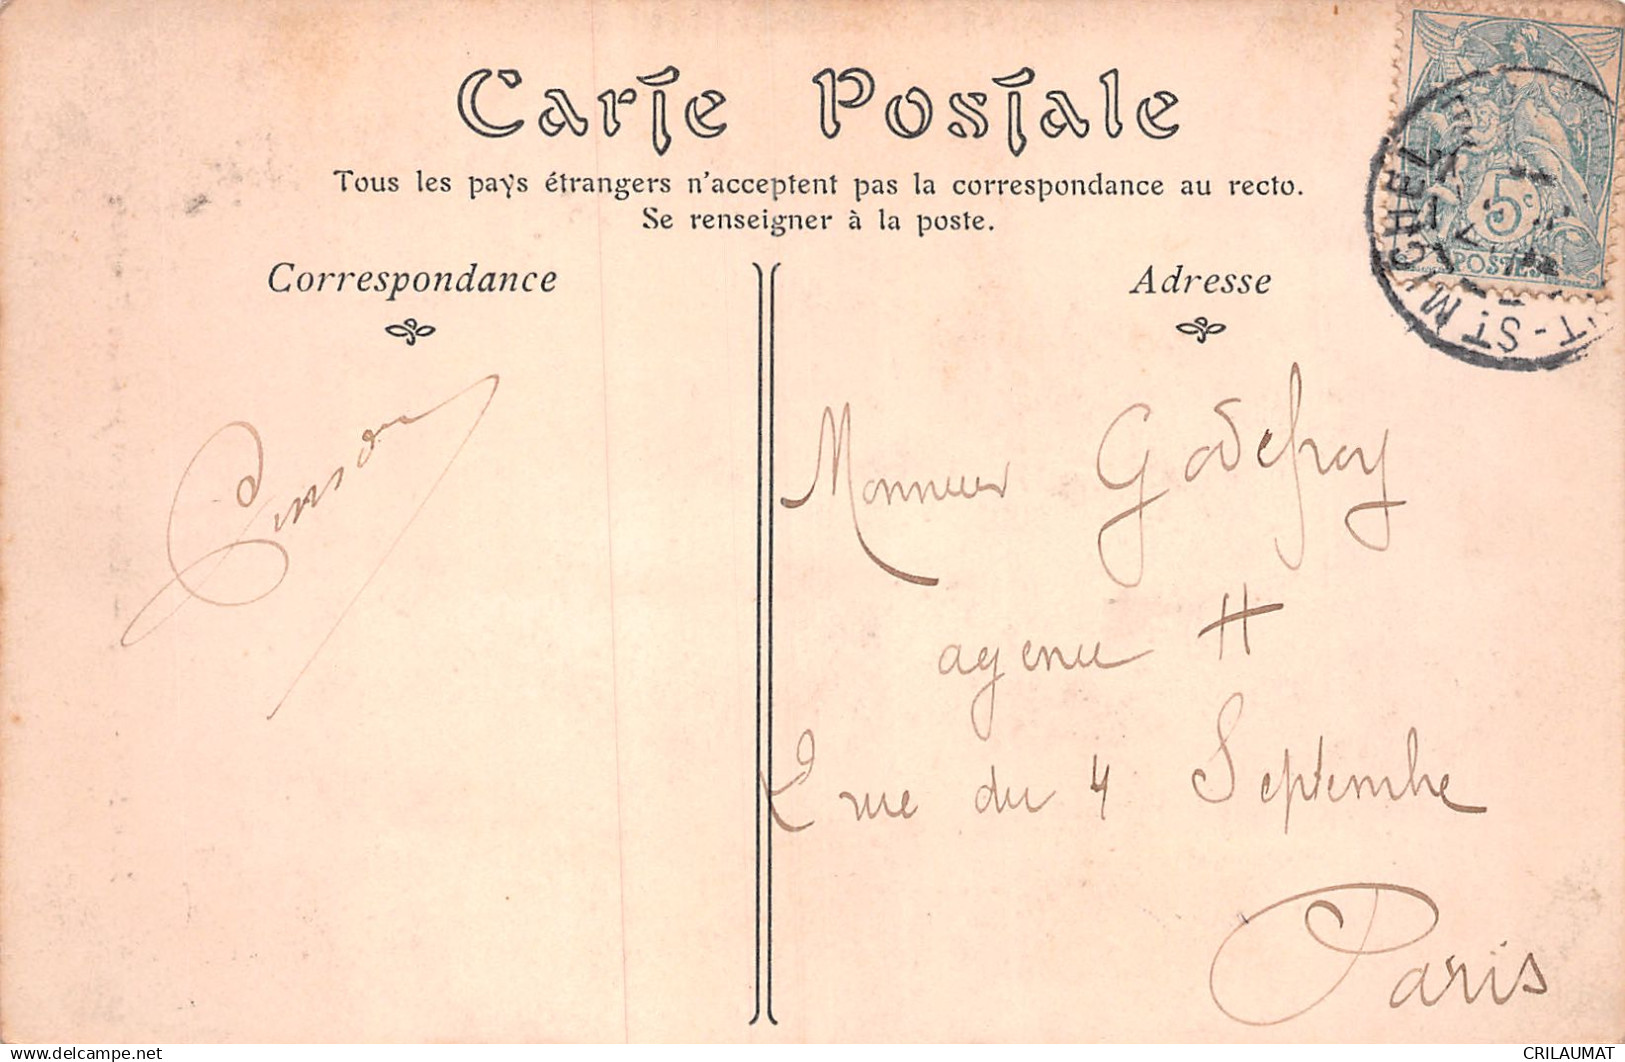 Carte Postale
Tous les pays étrangers n'acceptent pas la correspondance au recto.
Se renseigner à la poste.
Correspondance
Adresse
5c
POSTES
T-ST MICHEL
Monsieur Godefroy
agence H
2 rue du 4 Septembre
Paris
delcampe.net
CRILAUMAT